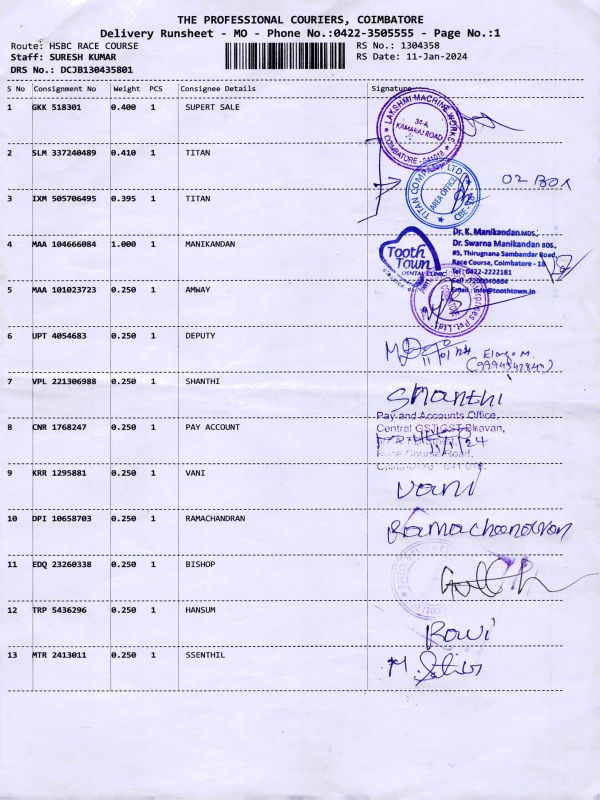 THE PROFESSIONAL COURIERS, COIMBATORE
Delivery Runsheet - MO - Phone No.:0422-3505555 - Page No.:1
Route: HSBC RACE COURSE RS No.: 1304358
Staff: SURESH KUMAR RS Date: 11-Jan-2024
DRS No.: DCJB130435801
S No Consignment No Weight PCS Consignee Details Signature
1 GKK 518301 0.400 1 SUPERT SALE
LAKSHMI MACHINE WORKS
34-A
KAMARAJ ROAD
COIMBATORE - 641018
2 SLM 337240489 0.410 1 TITAN
TITAN COMPANY LTD
AREA OFFICE
CBE
02 BOX
3 IXM 505706495 0.395 1 TITAN
4 MAA 104666084 1.000 1 MANIKANDAN
Tooth
Town
DENTAL CLINIC
Dr. K. Manikandan MDS.,
Dr. Swarna Manikandan BDS.,
#5, Thirugnana Sambandar Road,
Race Course, Coimbatore - 18
Tel : 0422-2222181
Cell : 7200040884
Email : info@toothtown.in
5 MAA 101023723 0.250 1 AMWAY
Pvt. Ltd.
6 UPT 4054683 0.250 1 DEPUTY
11/01/24
Elango M.
7 VPL 221306988 0.250 1 SHANTHI
SHANTHI
8 CNR 1768247 0.250 1 PAY ACCOUNT
Pay and Accounts Office,
Central GST, GST Bhavan,
11/1/24
Race Course Road,
9 KRR 1295881 0.250 1 VANI
Vani
10 DPI 10658703 0.250 1 RAMACHANDRAN
Ramachandran
11 EDQ 23260338 0.250 1 BISHOP
12 TRP 5436296 0.250 1 HANSUM
Ravi
13 MTR 2413011 0.250 1 SSENTHIL